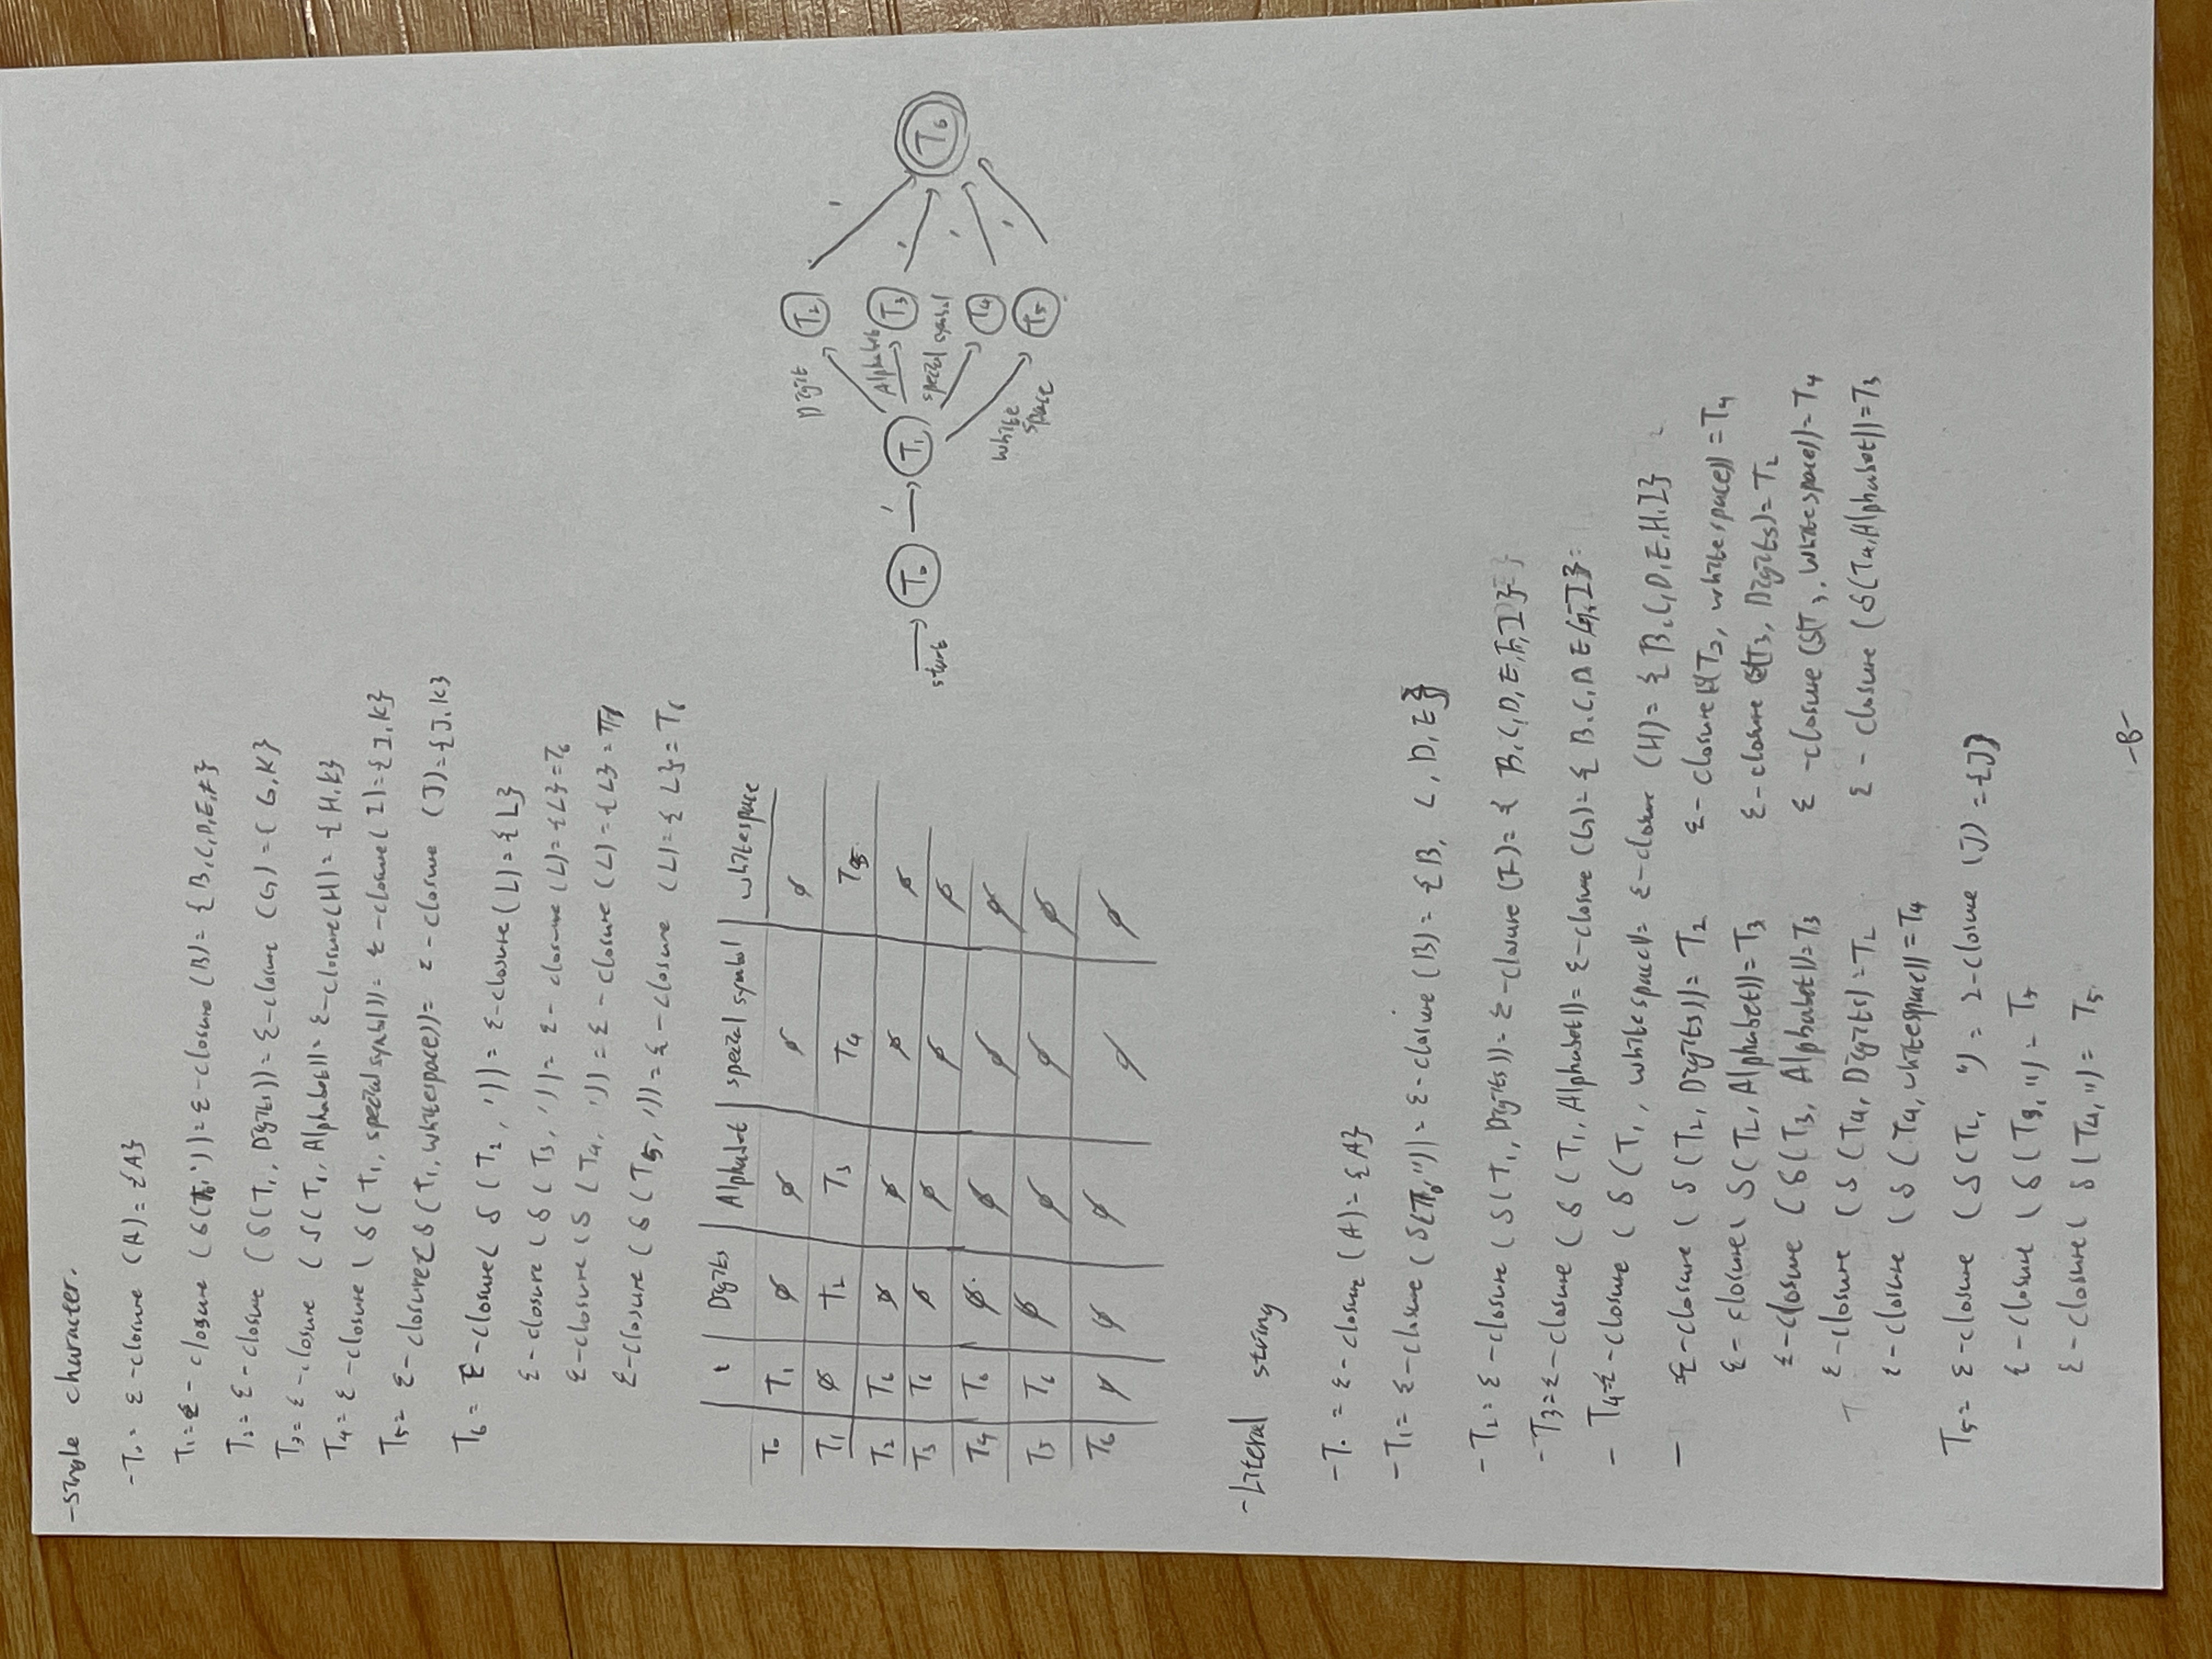 -single character.
-T₀= ε-closure (A)={A}
T₁=ε-closure (δ(T₀,'))=ε-closure(B)={B,C,D,E,F}
T₂=ε-closure (δ(T₁, Digits))=ε-closure (G)={G,K}
T₃=ε-closure (δ(T₁, Alphabet))=ε-closure(H)={H,K}
T₄=ε-closure (δ(T₁, special symbol))=ε-closure(I)={I,K}
T₅=ε-closure(δ(T₁, whitespace))=ε-closure (J)={J,K}
T₆=ε-closure(δ(T₂, '))=ε-closure(L)={L}
ε-closure (δ(T₃, '))=ε-closure (L)={L}=T₆
ε-closure (δ(T₄, '))=ε-closure (L)={L}=
ε-closure (δ(T₅, '))=ε-closure (L)={L}=T₆
' Digits Alphabet special symbol whitespace
T₀ T₁ ∅ ∅ ∅ ∅
T₁ ∅ T₂ T₃ T₄ T₅
T₂ T₆ ∅ ∅ ∅ ∅
T₃ T₆ ∅ ∅ ∅ ∅
T₄ T₆ ∅ ∅ ∅ ∅
T₅ T₆ ∅ ∅ ∅ ∅
T₆ ∅ ∅ ∅ ∅ ∅
Digit T₂ '
start T₀ ' T₁ Alphabet T₃ ' T₆
special symbol T₄ '
white space T₅ '
-Literal string
-T₀ = ε-closure (A)={A}
-T₁= ε-closure (δ(T₀,"))=ε-closure (B)={B, C, D, E}
-T₂=ε-closure (δ(T₁, Digits))=ε-closure (F)={B,C,D,E,F,I}
-T₃=ε-closure (δ(T₁, Alphabet))=ε-closure (G)={B,C,D,E,G,I}
-T₄=ε-closure (δ(T₁, whitespace))=ε-closure (H)={B,C,D,E,H,I}
- ε-closure (δ(T₂, Digits))=T₂ ε-closure(δ(T₂, whitespace))=T₄
ε-closure(δ(T₂, Alphabet))=T₃ ε-closure (δ(T₃, Digits)=T₂
ε-closure (δ(T₃, Alphabet))=T₃ ε-closure (δ(T₃, whitespace))=T₄
ε-closure (δ(T₄, Digits)=T₂ ε-closure (δ(T₄,Alphabet))=T₃
ε-closure (δ(T₄, whitespace))=T₄
T₅=ε-closure (δ(T₂, ")=ε-closure (J)={J}
ε-closure (δ(T₃, ")=T₅
ε-closure(δ(T₄, ")=T₅
-8-